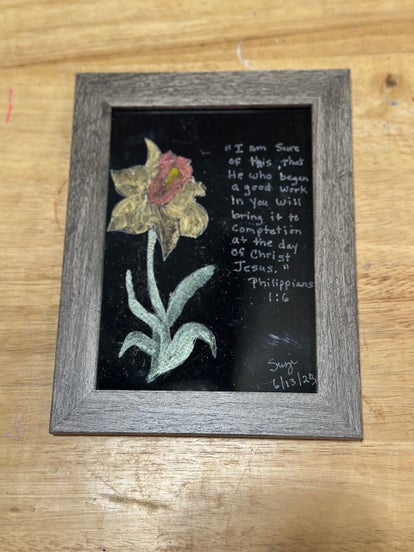 "I am Sure
of this, that
He who began
a good work
in you will
bring it to
Comptetion
at the day
of Christ
Jesus."
Philippians
1:6
Suzi
6/13/25